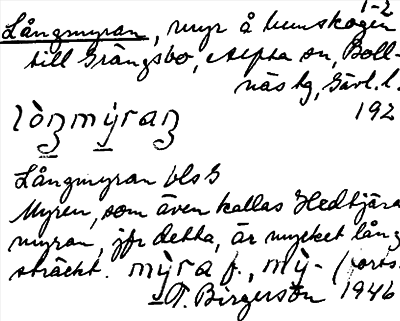 1-2
Långmyran, myr å hemskogen
till Grängsbo, Alfta sn, Boll-
näs tg, Gävl. l.
192
lòŋmỳraŋ
Långmyran bls G
Myren, som även kallas Hedtjära
myran, jfr detta, är mycket lång
sträckt. mỳra f., mỳ- (forts.
T. Birgerson 1946